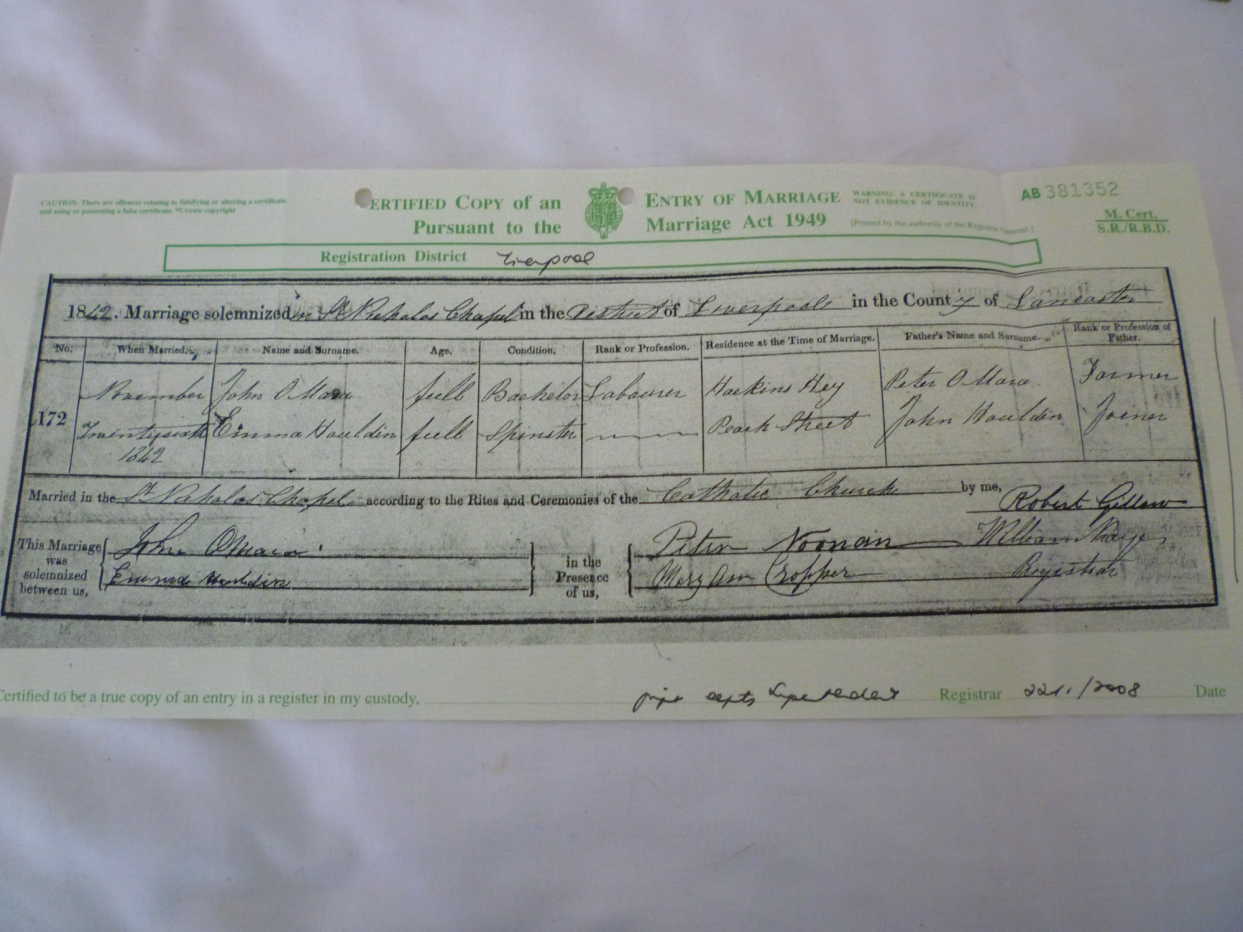 CAUTION: There are offences relating to falsifying or altering a certificate
and using or possessing a false certificate ©Crown copyright
CERTIFIED COPY of an ENTRY OF MARRIAGE
Pursuant to the Marriage Act 1949
WARNING: A CERTIFICATE IS
NOT EVIDENCE OF IDENTITY.
(Printed by the authority of the Registrar General.)
AB 381352
M. Cert.
S.R./R.B.D.
Registration District Liverpool
1842. Marriage solemnized in St Nicholas Chapel in the District of Liverpool in the County of Lancaster
No. When Married. Name and Surname. Age. Condition. Rank or Profession. Residence at the Time of Marriage. Father's Name and Surname. Rank or Profession of Father.
172 November John O Mara full Bachelor Labourer Hockins Hey Peter O Mara Farmer
Emma Houldin full Spinster Peach Street John Houldin Joiner
1842
Married in the St Nicholas Chapel according to the Rites and Ceremonies of the Catholic Church by me, Robert Gillow
This Marriage was solemnized between us, John O Mara in the Presence of us, Peter Noonan William
Emma Houldin Mary Ann Cropper Registrar
Certified to be a true copy of an entry in a register in my custody, Registrar /2008 Date